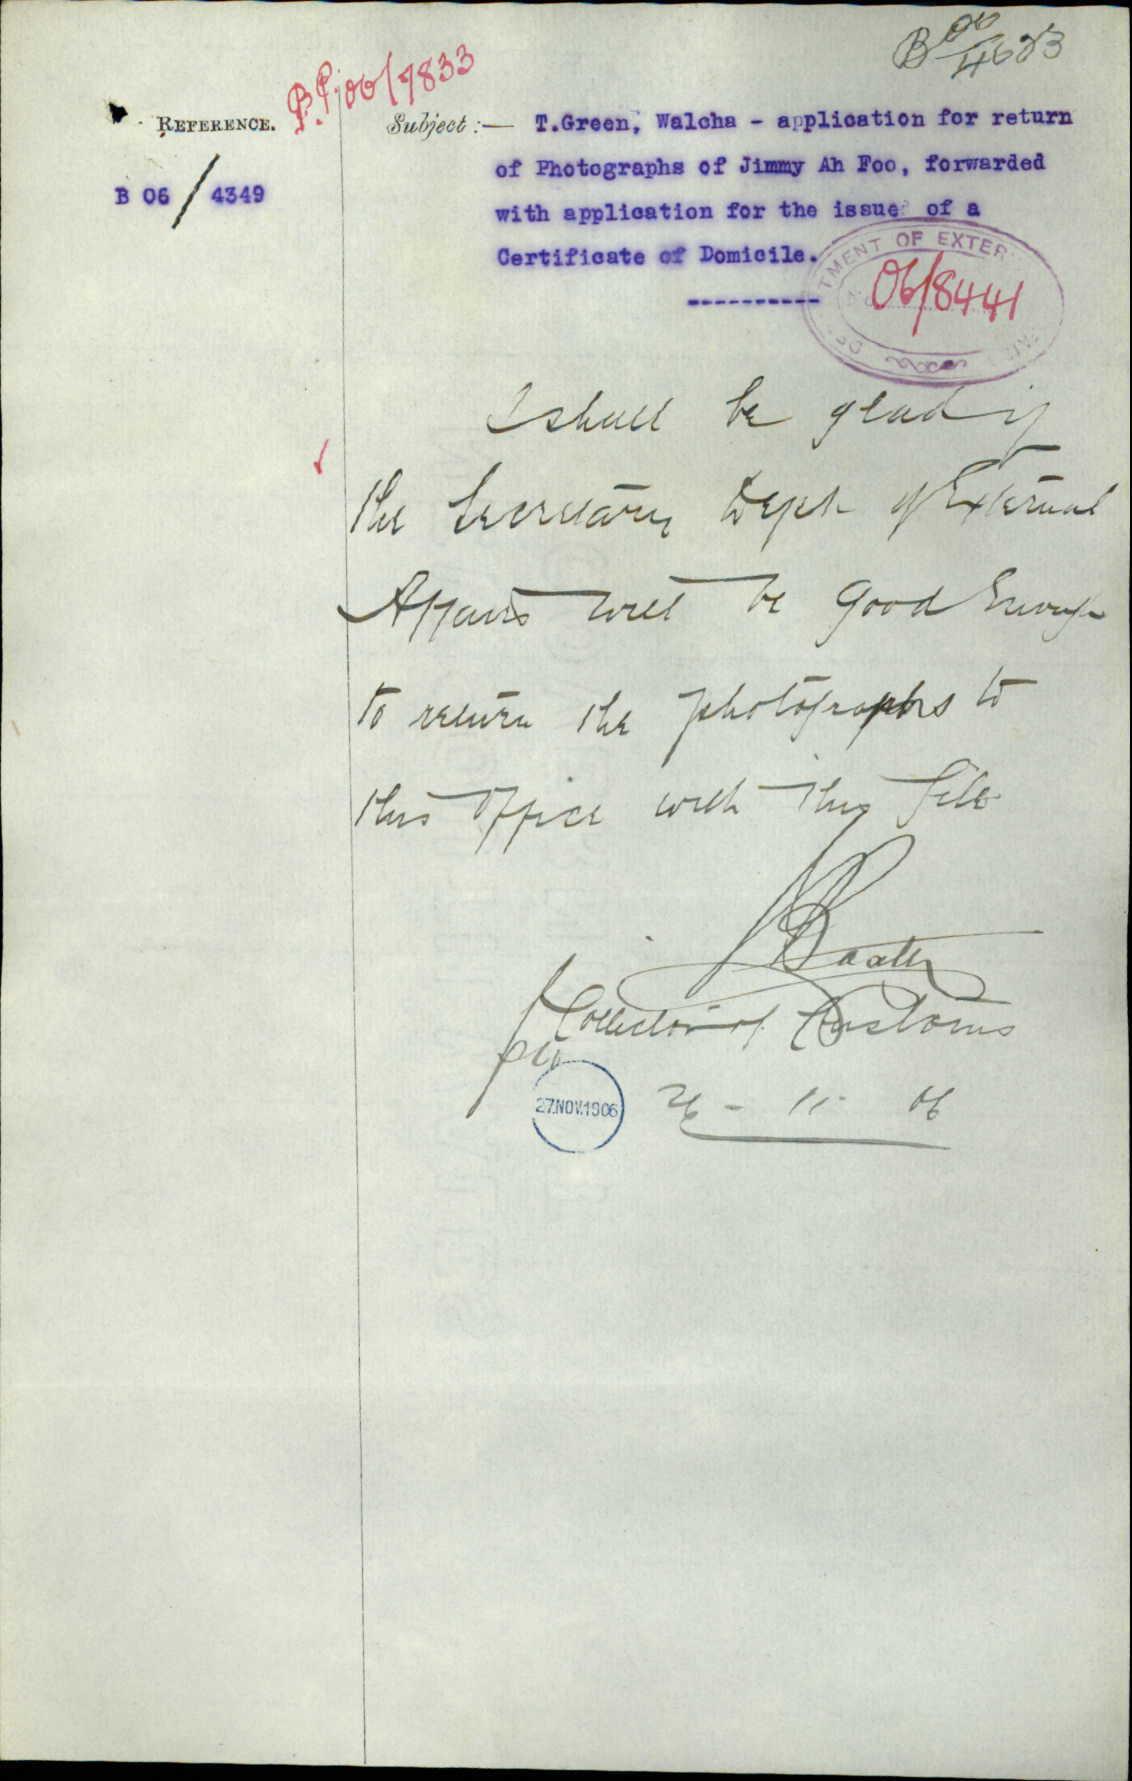 B 06/4683
P.P. 06/7833
REFERENCE.
B 06/4349
Subject:— T.Green, Walcha - application for return
of Photographs of Jimmy Ah Foo, forwarded
with application for the issue of a
Certificate of Domicile.
----------
TMENT OF EXTER
06/8441
I shall be glad if
the Secretary Dept of External
Affairs will be good enough
to return the photographs to
this Office with this file
Baxter
Collector of Customs
NSW
27.NOV.1906
26 - 11 - 06